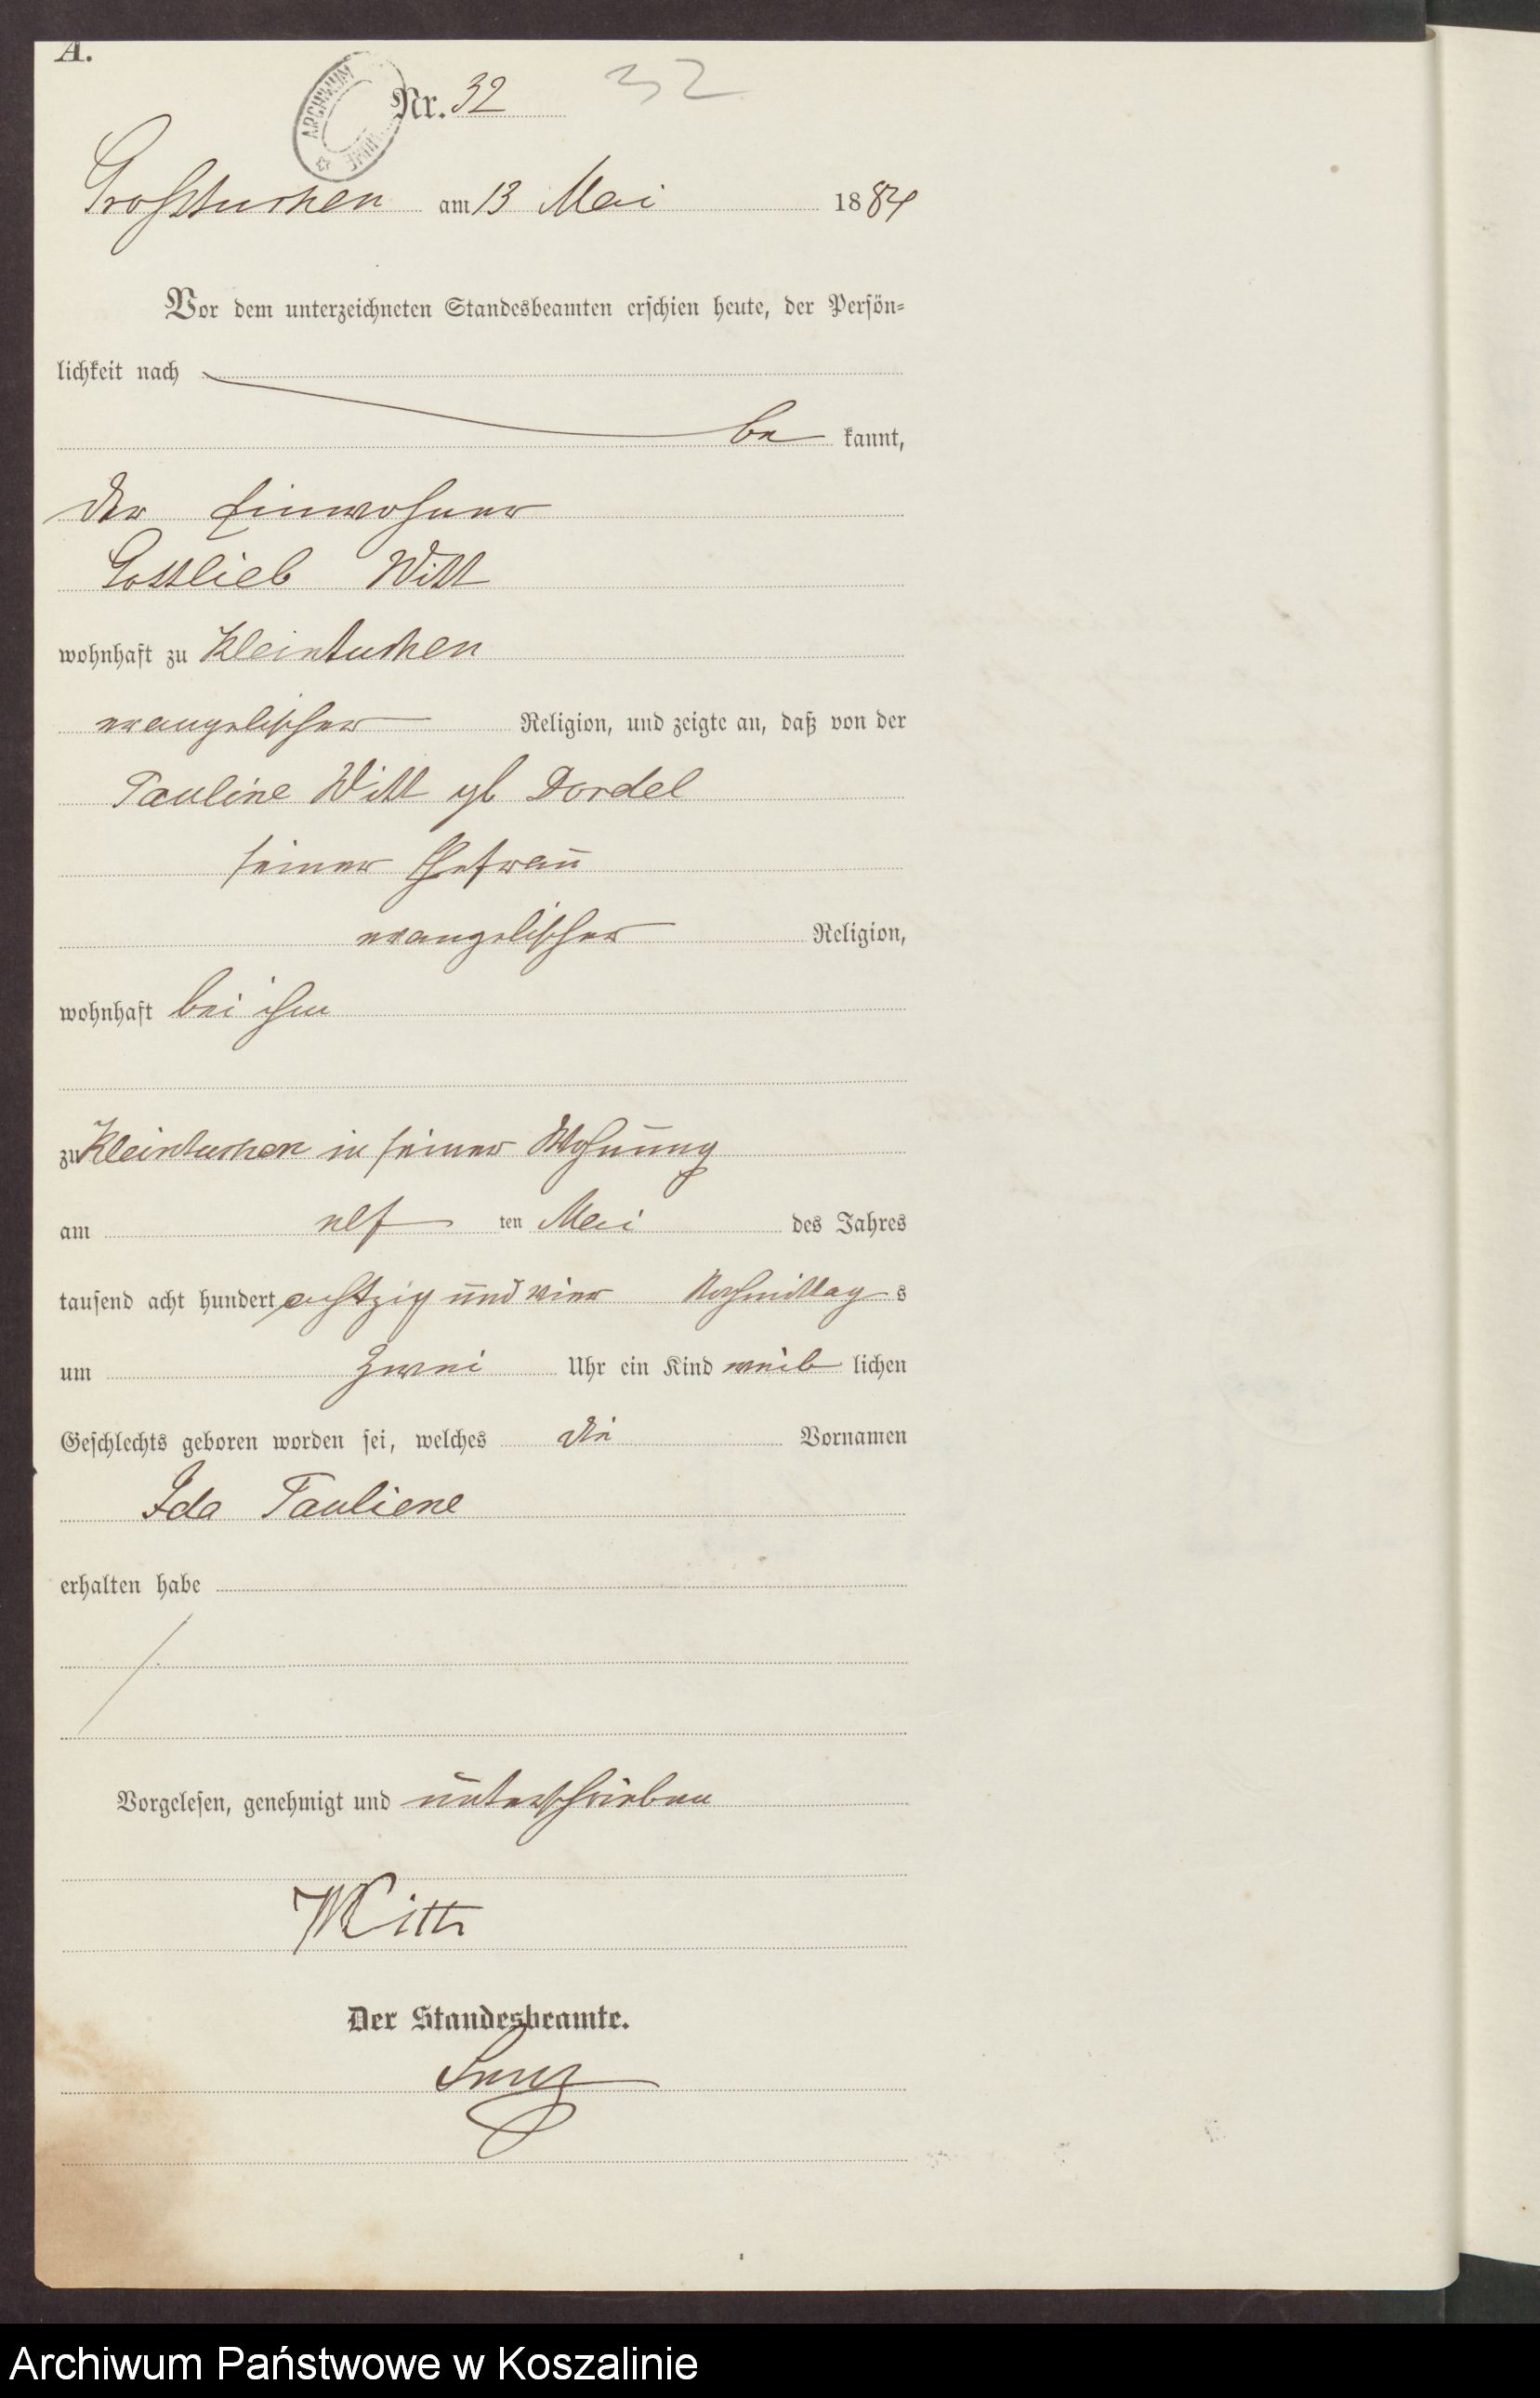 A.
Nr. 32 32
ARCHIWUM
Grosstuchen am 13 Mai 1884
Vor dem unterzeichneten Standesbeamten erschien heute, der Persön=
lichkeit nach
be kannt,
der Einwohner
Gottlieb Witt
wohnhaft zu Kleintuchen
evangelischer Religion, und zeigte an, daß von der
Pauline Witt gb Dordel
seiner Ehefrau
evangelischer Religion,
wohnhaft bei ihm
zu Kleintuchen in seiner Wohnung
am elf ten Mai des Jahres
tausend acht hundert achtzig und vier Nachmittag s
um zwei Uhr ein Kind weib lichen
Geschlechts geboren worden sei, welches die Vornamen
Ida Pauliene
erhalten habe
Vorgelesen, genehmigt und unterschrieben
Witt
Der Standesbeamte.
Archiwum Państwowe w Koszalinie